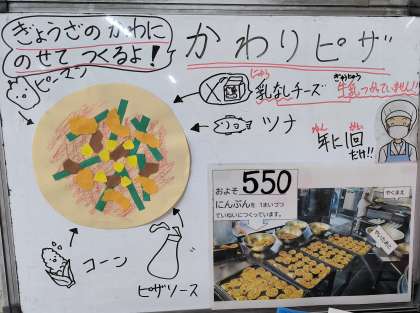 ぎょうざのかわに
のせてつくるよ!
かわりピザ
ピーマン
にゅう
乳なしチーズ
ぎゅうにゅう
牛乳つかっていません!!
ツナ
ねん かい
年に1回
だけ!!
およそ550
にんぶんを 1まいづつ
ていねいにつくっています。
やくまえ
コーン
ピザソース